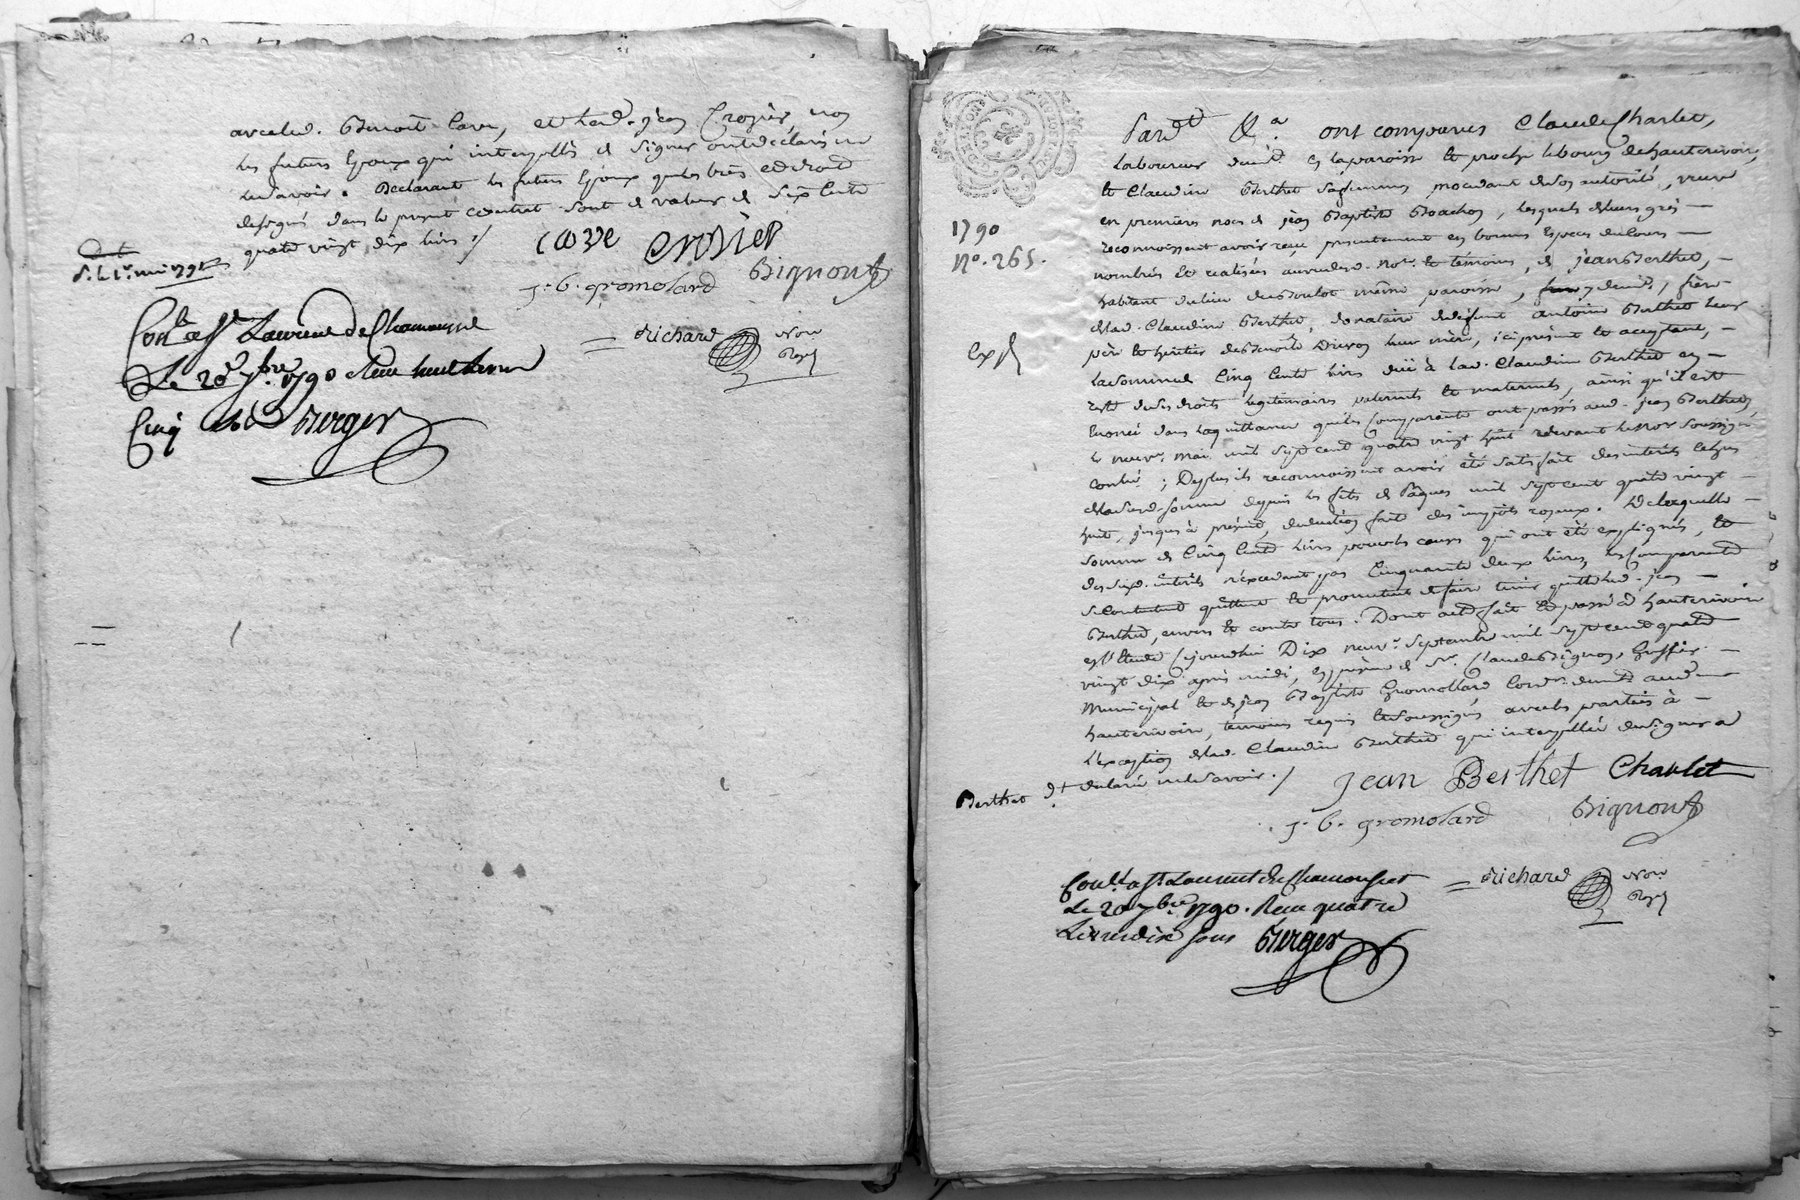 avec led. Benoit Cave, et led. jean Crozier, non
les futurs Epoux qui interpellés de signer ont déclaré ne
le savoir. Declarant les futurs Epoux que les biens et droits
designés dans le present contrat sont de valeur de Six Cents
quatre vingt dix livres ./
cave crosier
j. b. gromolard Bignon
Richard Nore
Royal
Con.le a St Laurent de Chamousset
Le 20e 7bre 1790 Reçu huit livres
Cinq sols Berger
1790
No. 265.
Exp
Pard.t &.a ont comparus Claude Charlet,
laboureur demt en la paroisse et proche le bourg de hauterivoire,
et Claudine Berthet sa femme, procedant de son autorité, veuve
en premieres noces de jean Baptiste Boachon, lesquels de leurs grés
reconnoissent avoir reçu presentement en bonnes Especes du Cours
nombrés et realisées au vu desd. Nore et temoins, de jean Berthet,
habitant du lieu du Boulot même paroisse, demt, frère
de lad. Claudine Berthet, donataire de defunt antoine Berthet leur
père et heritier de Benoite leur mère, ici present et acceptant,
la somme de Cinq Cents livres düe à lad. Claudine Berthet en
reste de ses droits legitimaires paternels et maternels, ainsi qu'il est
Enoncé dans la quittance que les Comparants ont passée aud. jean Berthet,
le neuf mai mil sept cent quatre vingt huit devant le Nore soussigné
Contlé ; De plus ils reconnoissent avoir été satisfait des interets echus
de lad. somme depuis les fêtes de Pâques mil sept cent quatre vingt
huit, jusques à présent, deduction faite des impôts royaux. De laquelle
somme de Cinq Cents livres pour les causes qui ont été expliqués, et
desd. interets n'excedant pas Cinquante deux livres, les Comparants
se contentent quittent et promettent de faire tenir quitte led. jean
Berthet, envers et contre tous. Dont acte fait et passé à hauterivoire
en l'Etude Cejourdhui Dix neuf Septembre mil sept cent quatre
vingt dix après midi, En présence de Sr. Claude Bignon, Greffier
Municipal et de jean Baptiste Gromollard, Cord.r demts aud.
hauterivoire, temoins requis et soussignés avec les parties à
l'exception de lad. Claudine Berthet qui interpellée de signer a
declaré ne le savoir ./
Berthet dt
Jean Berthet Charlet
j. b. gromolard Bignon
Richard Nore
Royal
Con.lé a St Laurent de Chamousset
Le 20 7bre 1790. Reçu quatre
Livres dix sous Berger